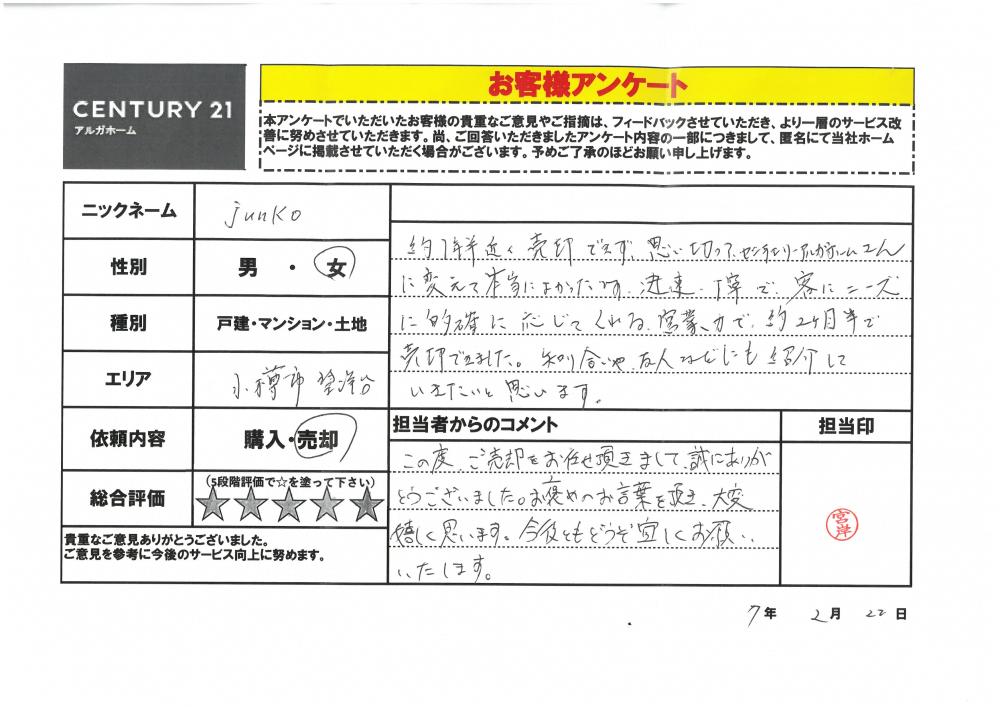 CENTURY 21
アルガホーム
お客様アンケート
本アンケートでいただいたお客様の貴重なご意見やご指摘は、フィードバックさせていただき、より一層のサービス改
善に努めさせていただきます。尚、ご回答いただきましたアンケート内容の一部につきまして、匿名にて当社ホーム
ページに掲載させていただく場合がございます。予めご了承のほどお願い申し上げます。
ニックネーム
junko
性別
男 ・ 女
種別
戸建・マンション・土地
エリア
小樽市 望洋台
依頼内容
購入・売却
総合評価
(5段階評価で☆を塗って下さい)
★★★★★
貴重なご意見ありがとうございました。
ご意見を参考に今後のサービス向上に努めます。
約1年半近く売却できず、思い切って、センチュリーアルガホームさん
に変えて本当によかったです。迅速、丁寧で、客にニーズ
に的確に応じてくれる、営業力で、約2ヶ月半で
売却できました。知り合いや友人などにも紹介して
いきたいと思います。
担当者からのコメント
この度、ご売却をお任せ頂きまして、誠にありが
とうございました。お褒めのお言葉を頂き、大変
嬉しく思います。今後ともどうぞ宜しくお願い
いたします。
担当印
宮岸
7年 2月 22日